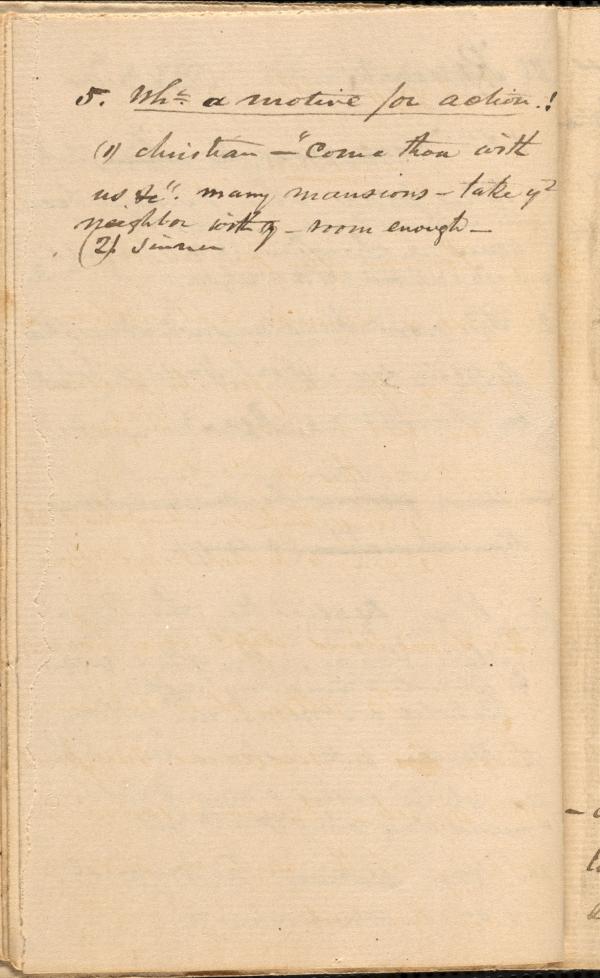 5. Wht a motive for action.!
(1) christian — "Come thou with
us &c". many mansions – take yr
neighbor with y – room enough –
(2) Sinner